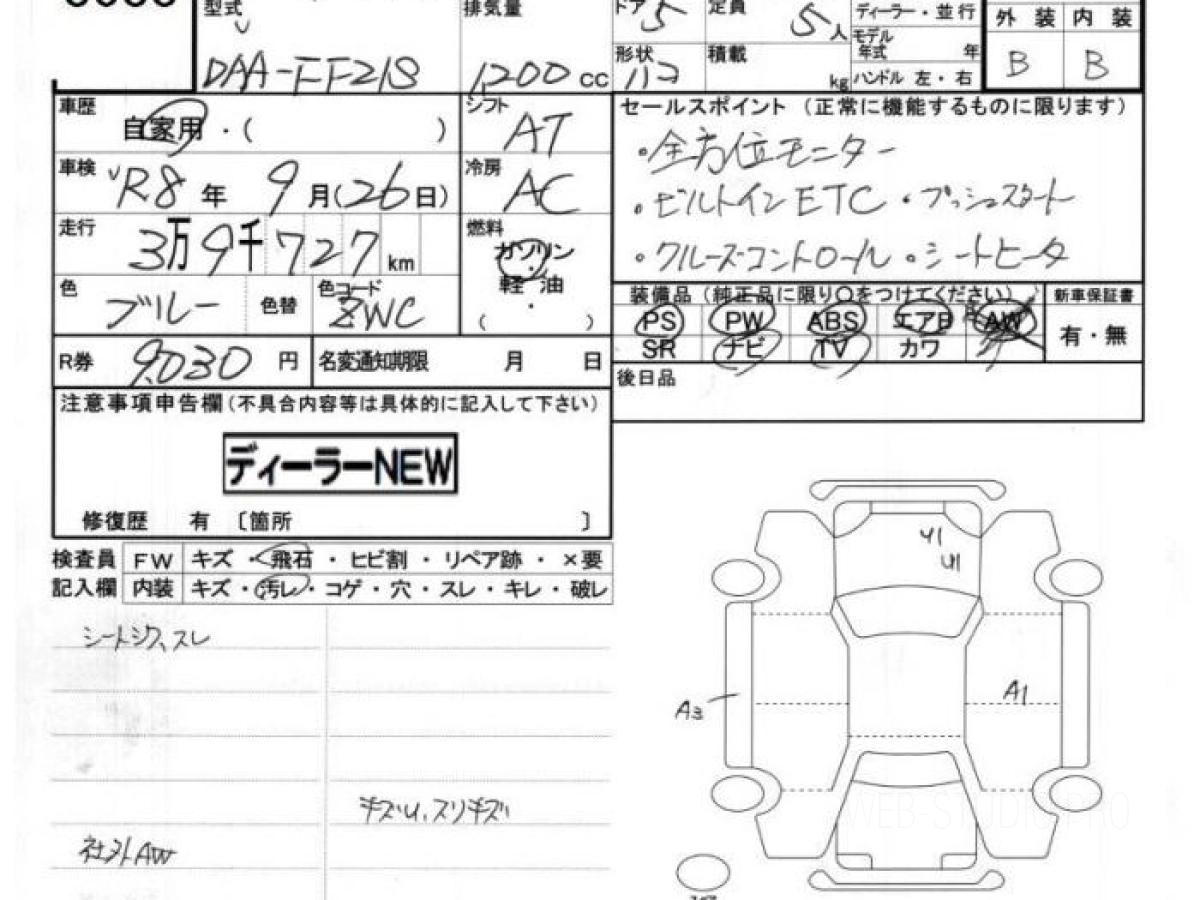 型式 排気量 ドア 5 定員 5人 ディーラー・並行 外装 内装
DAA-FF21S 1200 cc 形状 積載 kg モデル年式 年 B B
ハンドル 左・右
車歴 自家用・( ) シフト AT セールスポイント (正常に機能するものに限ります)
・全方位モニター
車検 R8年 9月(26日) 冷房 AC ・ビルトインETC・プッシュスタート
走行 3万9千727km 燃料 ガソリン ・クルーズコントロール・シートヒータ
軽油
・
( )
色 ブルー 色替 色コード ZWC 装備品(純正品に限り○をつけてください) 新車保証書
PS PW ABS エアB AW 有・無
SR ナビ TV カワ
R券 9,030円 名変通知期限 月 日 後日品
注意事項申告欄(不具合内容等は具体的に記入して下さい)
ディーラーNEW
修復歴 有 〔箇所 〕
検査員 FW キズ・飛石・ヒビ割・リペア跡・×要
記入欄 内装 キズ・汚レ・コゲ・穴・スレ・キレ・破レ
シートシワ、スレ
キズU、スリキズ
社外AW
U1
A1
A3
WEB-STUDIO.PRO